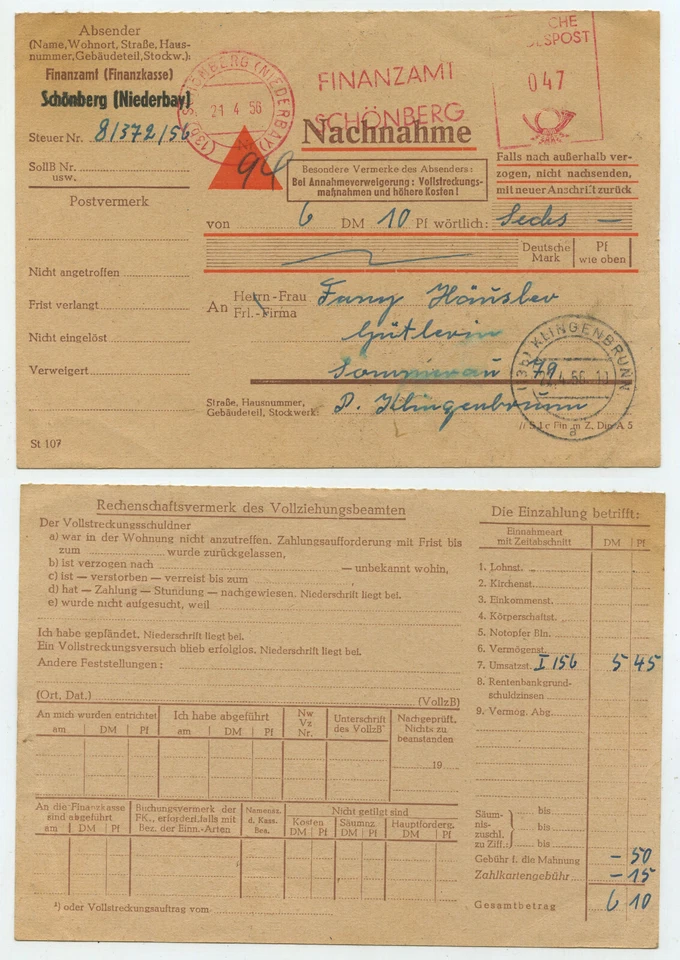 Absender
(Name, Wohnort, Straße, Haus-
nummer, Gebäudeteil, Stockw.):
Finanzamt (Finanzkasse)
Schönberg (Niederbay)
Steuer Nr. 8/372/56
SollB Nr.
usw.
Postvermerk
Nicht angetroffen
Frist verlangt
Nicht eingelöst
Verweigert
St 107
SCHÖNBERG (NIEDERBAY)
21.4.56
FINANZAMT
SCHÖNBERG
CHE
ESPOST
047
Nachnahme
94
Besondere Vermerke des Absenders:
Bei Annahmeverweigerung: Vollstreckungs-
maßnahmen und höhere Kosten!
Falls nach außerhalb ver-
zogen, nicht nachsenden,
mit neuer Anschrift zurück
von 6 DM 10 Pf wörtlich: Sechs —
Deutsche Mark
Pf wie oben
An Herrn-Frau Fany Häusler
Frl.-Firma
Gütlerin
Sommerau 79
Straße, Hausnummer,
Gebäudeteil, Stockwerk:
P. Klingenbrunn
KLINGENBRUNN
.4.56
a
Din A 5
Rechenschaftsvermerk des Vollziehungsbeamten
Der Vollstreckungsschuldner
a) war in der Wohnung nicht anzutreffen. Zahlungsaufforderung mit Frist bis
zum wurde zurückgelassen,
b) ist verzogen nach — unbekannt wohin,
c) ist — verstorben — verreist bis zum
d) hat — Zahlung — Stundung — nachgewiesen. Niederschrift liegt bei.
e) wurde nicht aufgesucht, weil
Ich habe gepfändet. Niederschrift liegt bei.
Ein Vollstreckungsversuch blieb erfolglos. Niederschrift liegt bei.
Andere Feststellungen:
(Ort, Dat.) (VollzB)
An mich wurden entrichtet
am DM Pf
Ich habe abgeführt
am DM Pf
Nw
Vz
Nr.
Unterschrift
des VollzB
Nachgeprüft,
Nichts zu
beanstanden
19
An die Finanzkasse
sind abgeführt
am DM Pf
Buchungsvermerk der
FK., erforderl.falls mit
Bez. der Einn.-Arten
Namensz.
d. Kass.
Bea.
Nicht getilgt sind
Kosten
DM Pf
Säumnz.
DM Pf
Hauptforderg.
DM Pf
²) oder Vollstreckungsauftrag vom
Die Einzahlung betrifft:
Einnahmeart
mit Zeitabschnitt
DM Pf
1. Lohnst.
2. Kirchenst.
3. Einkommenst.
4. Körperschaftst.
5. Notopfer Bln.
6. Vermögenst.
7. Umsatzst. I 156 5 45
8. Rentenbankgrund-
schuldzinsen
9. Vermög. Abg.
Säum-
nis-
zuschl.
zu Ziff.
bis
bis
bis
Gebühr f. die Mahnung — 50
Zahlkartengebühr — 15
Gesamtbetrag 6 10